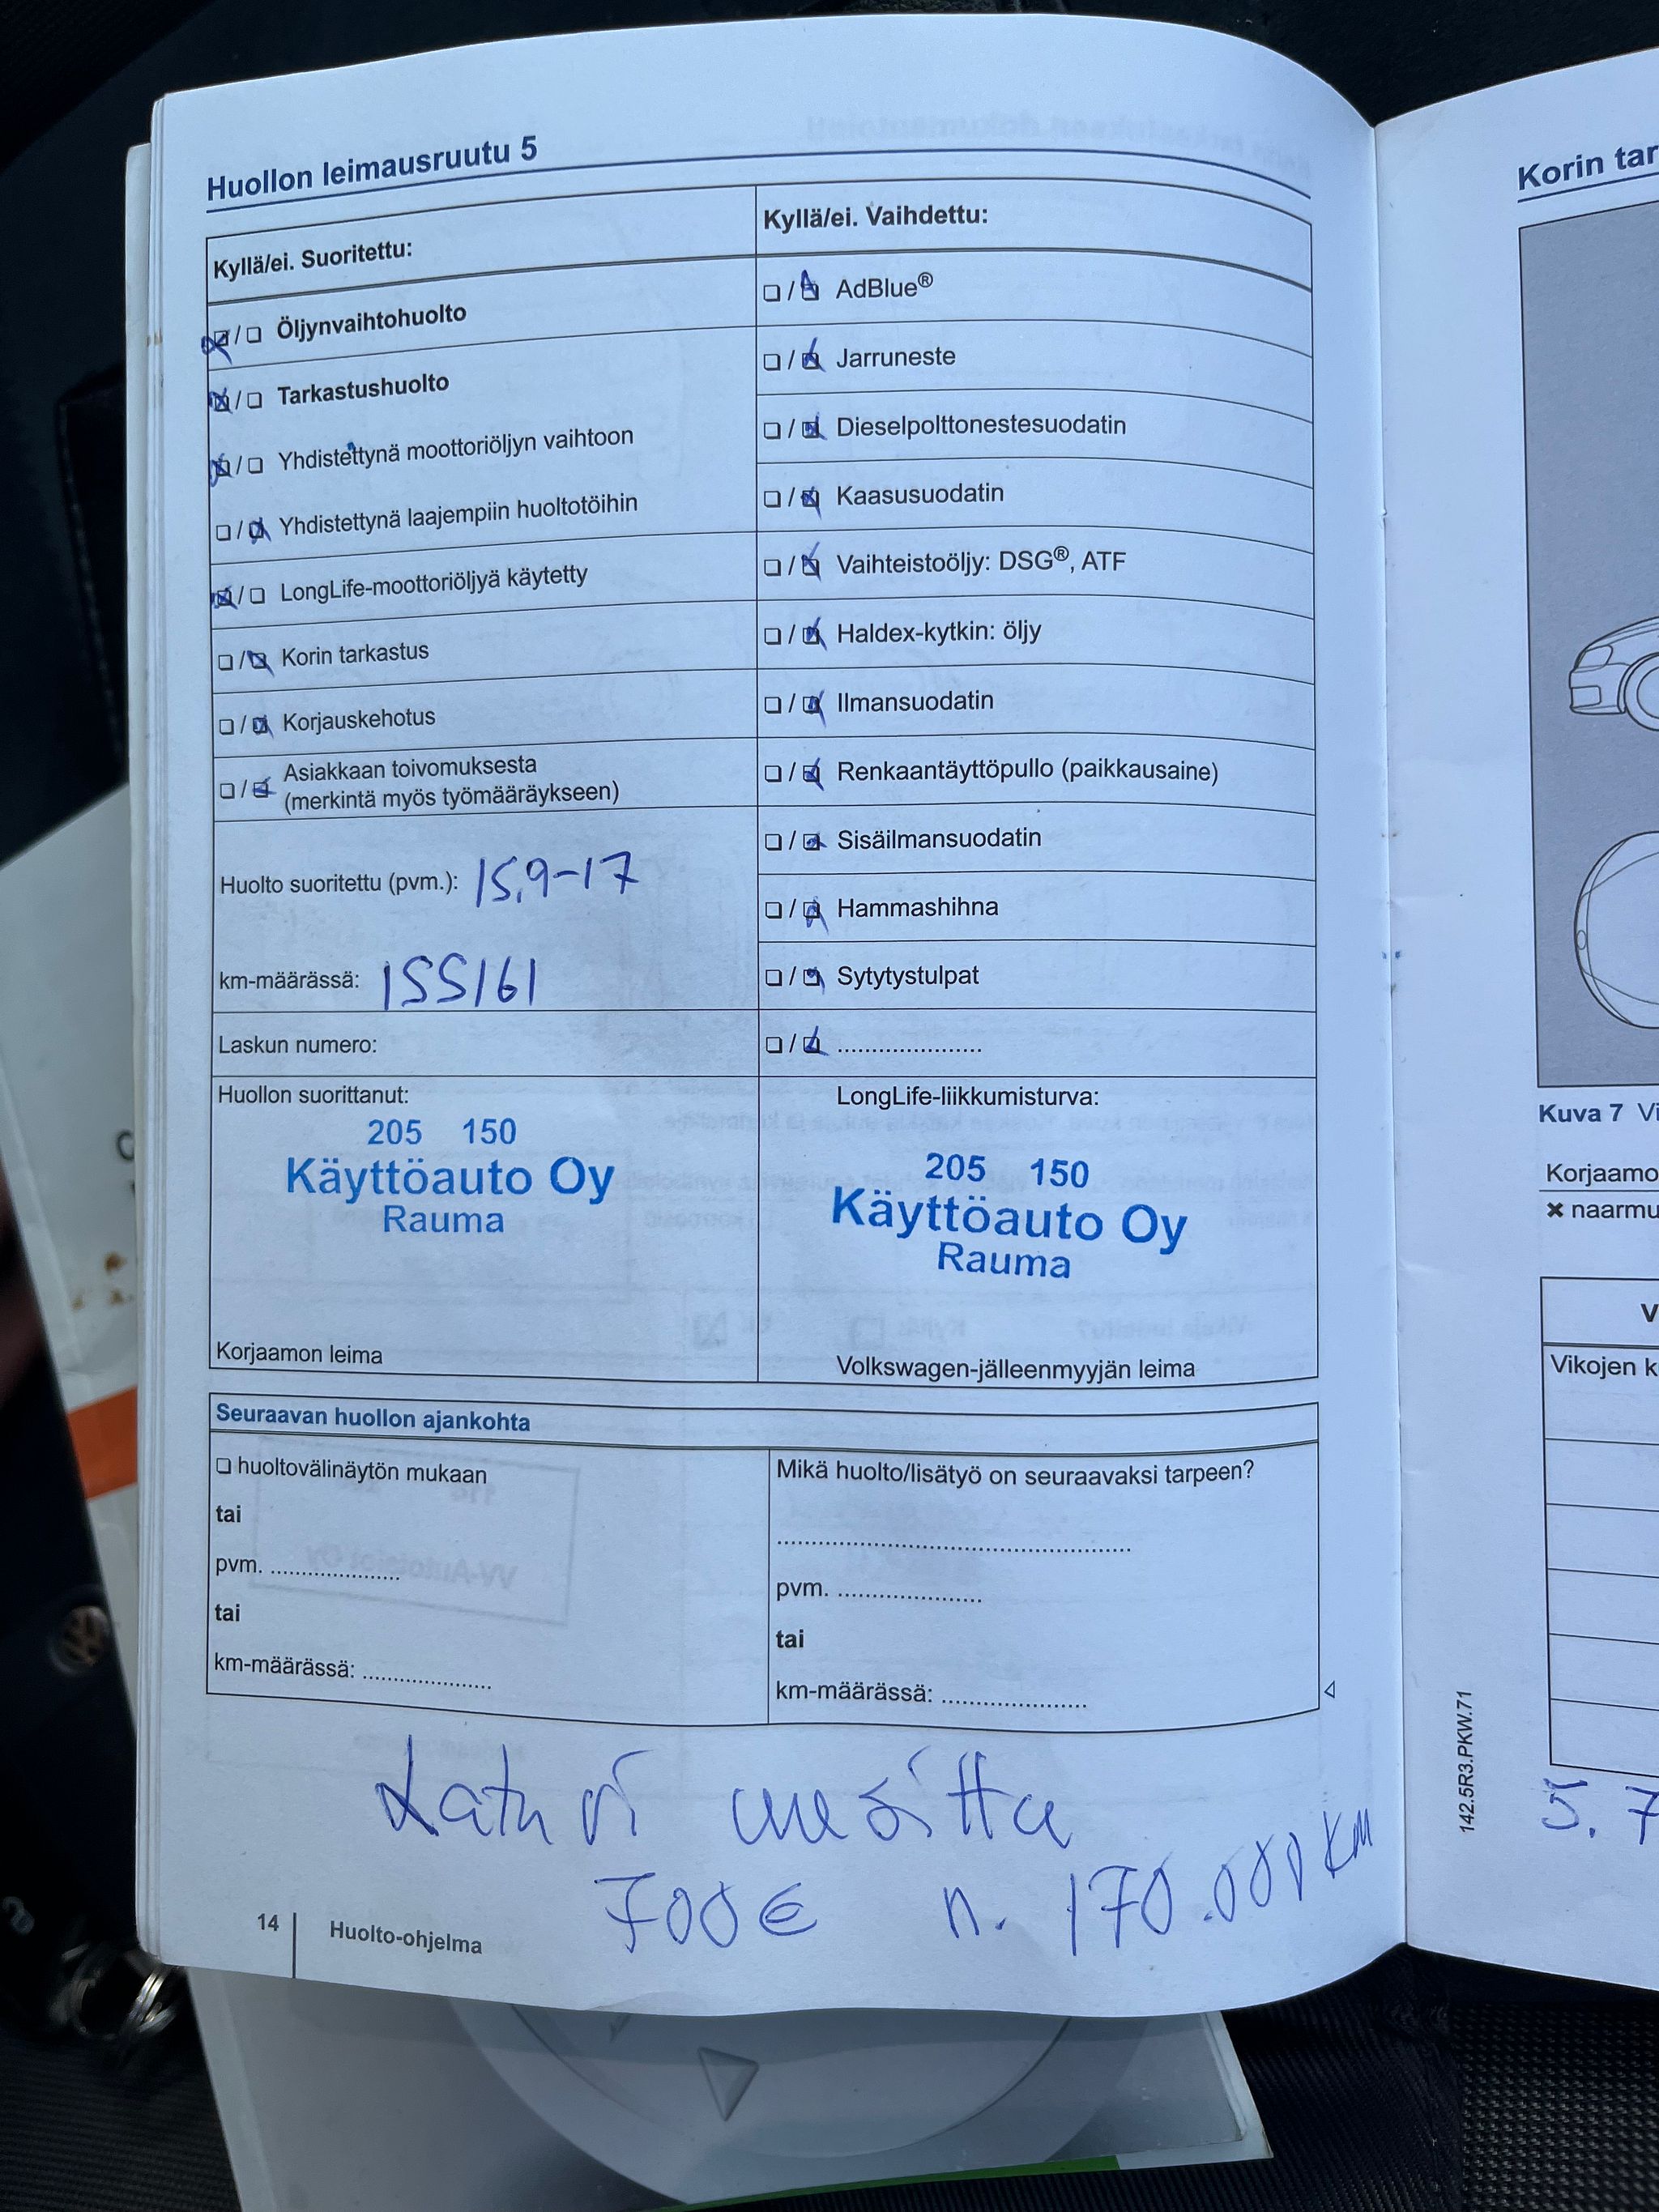 Huollon leimausruutu 5
Kyllä/ei. Suoritettu:
☒/❏ Öljynvaihtohuolto
☒/❏ Tarkastushuolto
☒/❏ Yhdistettynä moottoriöljyn vaihtoon
❏/☒ Yhdistettynä laajempiin huoltotöihin
☒/❏ LongLife-moottoriöljyä käytetty
❏/☒ Korin tarkastus
❏/☒ Korjauskehotus
❏/☒ Asiakkaan toivomuksesta
(merkintä myös työmääräykseen)
Huolto suoritettu (pvm.): 15.9-17
km-määrässä: 155161
Laskun numero:
Huollon suorittanut:
205 150
Käyttöauto Oy
Rauma
Korjaamon leima
Kyllä/ei. Vaihdettu:
❏/☒ AdBlue®
❏/☒ Jarruneste
❏/☒ Dieselpolttonestesuodatin
❏/☒ Kaasusuodatin
❏/☒ Vaihteistoöljy: DSG®, ATF
❏/☒ Haldex-kytkin: öljy
❏/☒ Ilmansuodatin
❏/☒ Renkaantäyttöpullo (paikkausaine)
❏/☒ Sisäilmansuodatin
❏/☒ Hammashihna
❏/☒ Sytytystulpat
❏/☒ .....................
LongLife-liikkumisturva:
205 150
Käyttöauto Oy
Rauma
Volkswagen-jälleenmyyjän leima
Seuraavan huollon ajankohta
❏ huoltovälinäytön mukaan
tai
pvm. .....................
tai
km-määrässä: .....................
Mikä huolto/lisätyö on seuraavaksi tarpeen?
.....................................................
pvm. .....................
tai
km-määrässä: .....................
Laturi
700€ n. 170.000 KM
14 Huolto-ohjelma
Korin tar
Kuva 7 Vi
Korjaamo
✖ naarmu
V
Vikojen k
142.5R3.PKW.71
5. 7